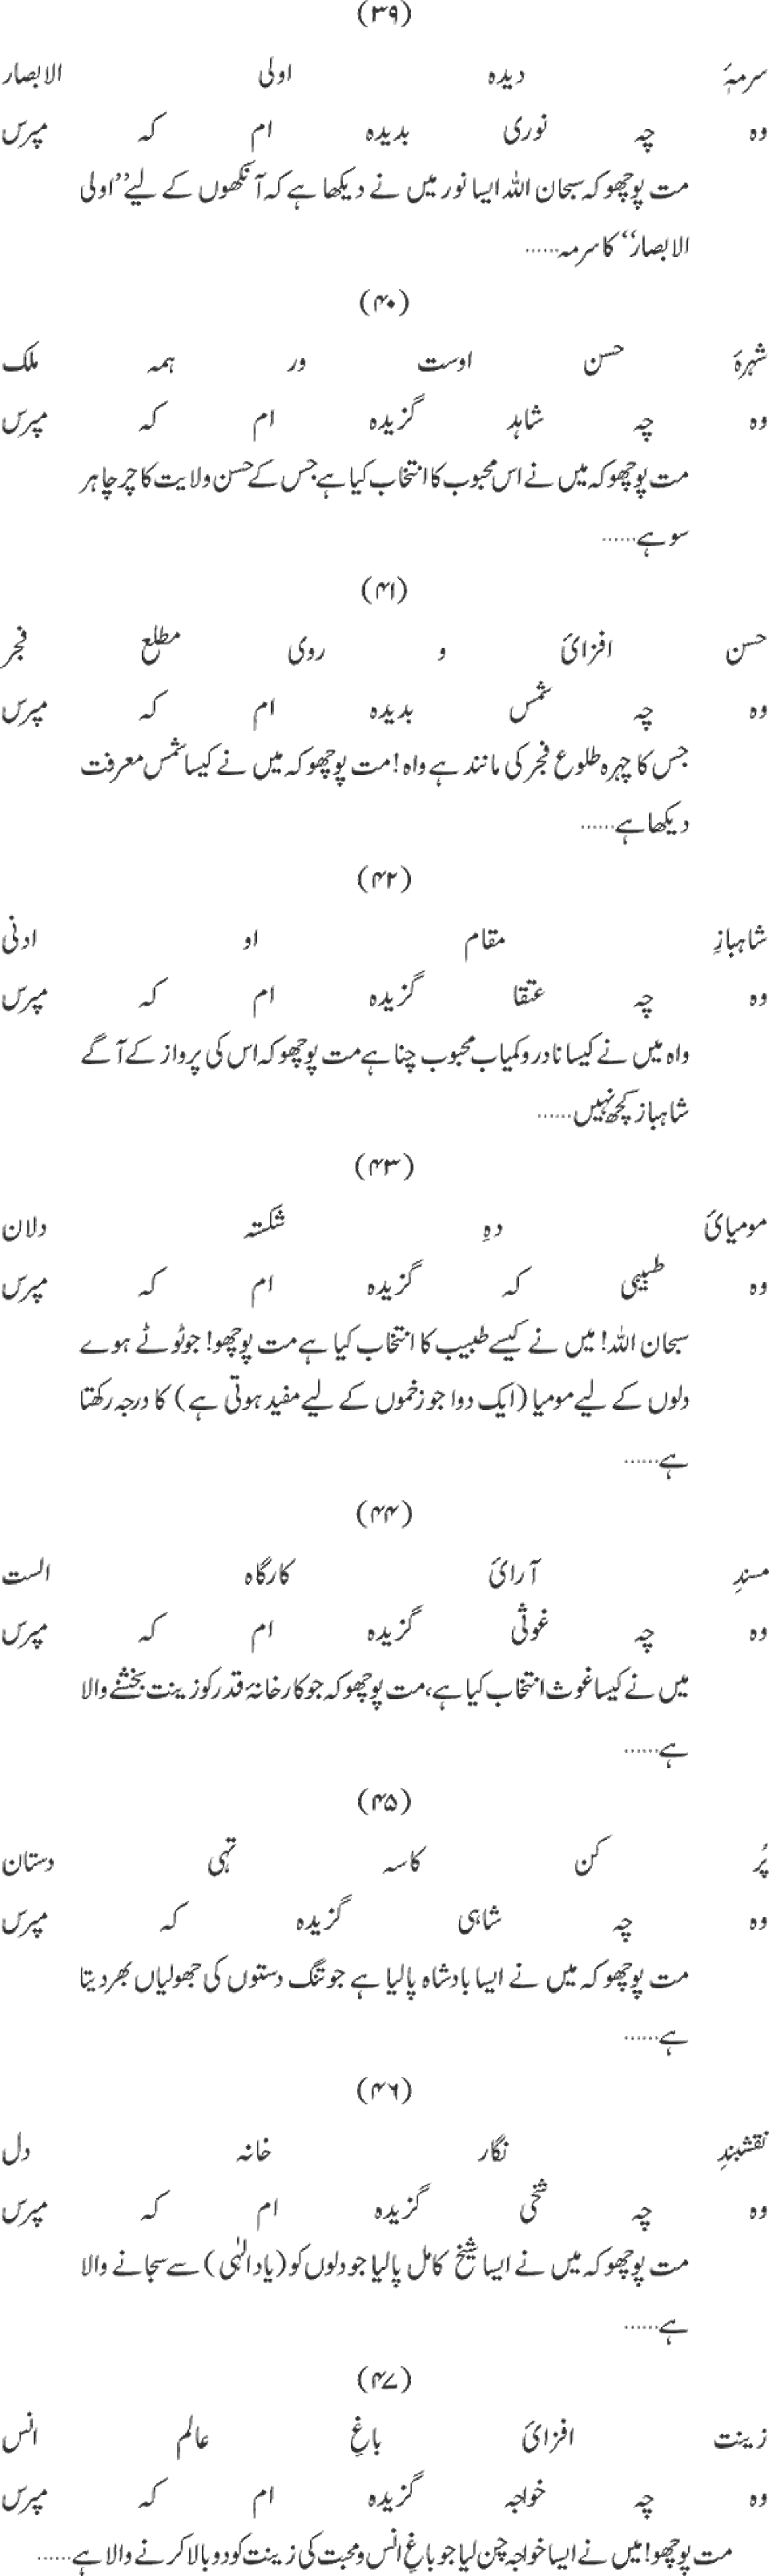 (۳۹)
سرمۂ دیدہ اولی الابصار
وہ چہ نوری بدیدہ ام کہ مپرس
مت پوچھو کہ سبحان اللہ ایسا نور میں نے دیکھا ہے کہ آنکھوں کے لیے ’’اولی
الابصار‘‘ کا سرمہ......
(۴۰)
شہرۂ حسن اوست ور ہمہ ملک
وہ چہ شاہد گزیدہ ام کہ مپرس
مت پوچھو کہ میں نے اس محبوب کا انتخاب کیا ہے جس کے حسن ولایت کا چرچا ہر
سو ہے......
(۴۱)
حسن افزائ و روی مطلع فجر
وہ چہ شمس بدیدہ ام کہ مپرس
جس کا چہرہ طلوع فجر کی مانند ہے واہ! مت پوچھو کہ میں نے کیسا شمس معرفت
دیکھا ہے......
(۴۲)
شاہبازِ مقام او ادنی
وہ چہ عتقا گزیدہ ام کہ مپرس
واہ میں نے کیسا نادر و کمیاب محبوب چنا ہے مت پوچھو کہ اس کی پرواز کے آگے
شاہباز کچھ نہیں......
(۴۳)
مومیائ دہِ شکستہ دلان
وہ طبیبی کہ گزیدہ ام کہ مپرس
سبحان اللہ! میں نے کیسے طبیب کا انتخاب کیا ہے مت پوچھو! جو ٹوٹے ہوے
دلوں کے لیے مومیا (ایک دوا جو زخموں کے لیے مفید ہوتی ہے) کا درجہ رکھتا
ہے......
(۴۴)
مسندِ آرائ کارگاہ الست
وہ چہ غوثی گزیدہ ام کہ مپرس
میں نے کیسا غوث انتخاب کیا ہے، مت پوچھو کہ جو کارخانۂ قدر کو زینت بخشنے والا
ہے......
(۴۵)
پُر کن کاسہ تہی دستان
وہ چہ شاہی گزیدہ کہ مپرس
مت پوچھو کہ میں نے ایسا بادشاہ پالیا ہے جو تنگ دستوں کی جھولیاں بھر دیتا
ہے......
(۴۶)
نقشبندِ نگار خانہ دل
وہ چہ شخی گزیدہ ام کہ مپرس
مت پوچھو کہ میں نے ایسا شیخ کامل پالیا جو دلوں کو (یاد الٰہی) سے سجانے والا
ہے......
(۴۷)
زینت افزائ باغِ عالم انس
وہ چہ خواجہ گزیدہ ام کہ مپرس
مت پوچھو! میں نے ایسا خواجہ چن لیا جو باغِ انس و محبت کی زینت کو دوبالا کرنے والا ہے......